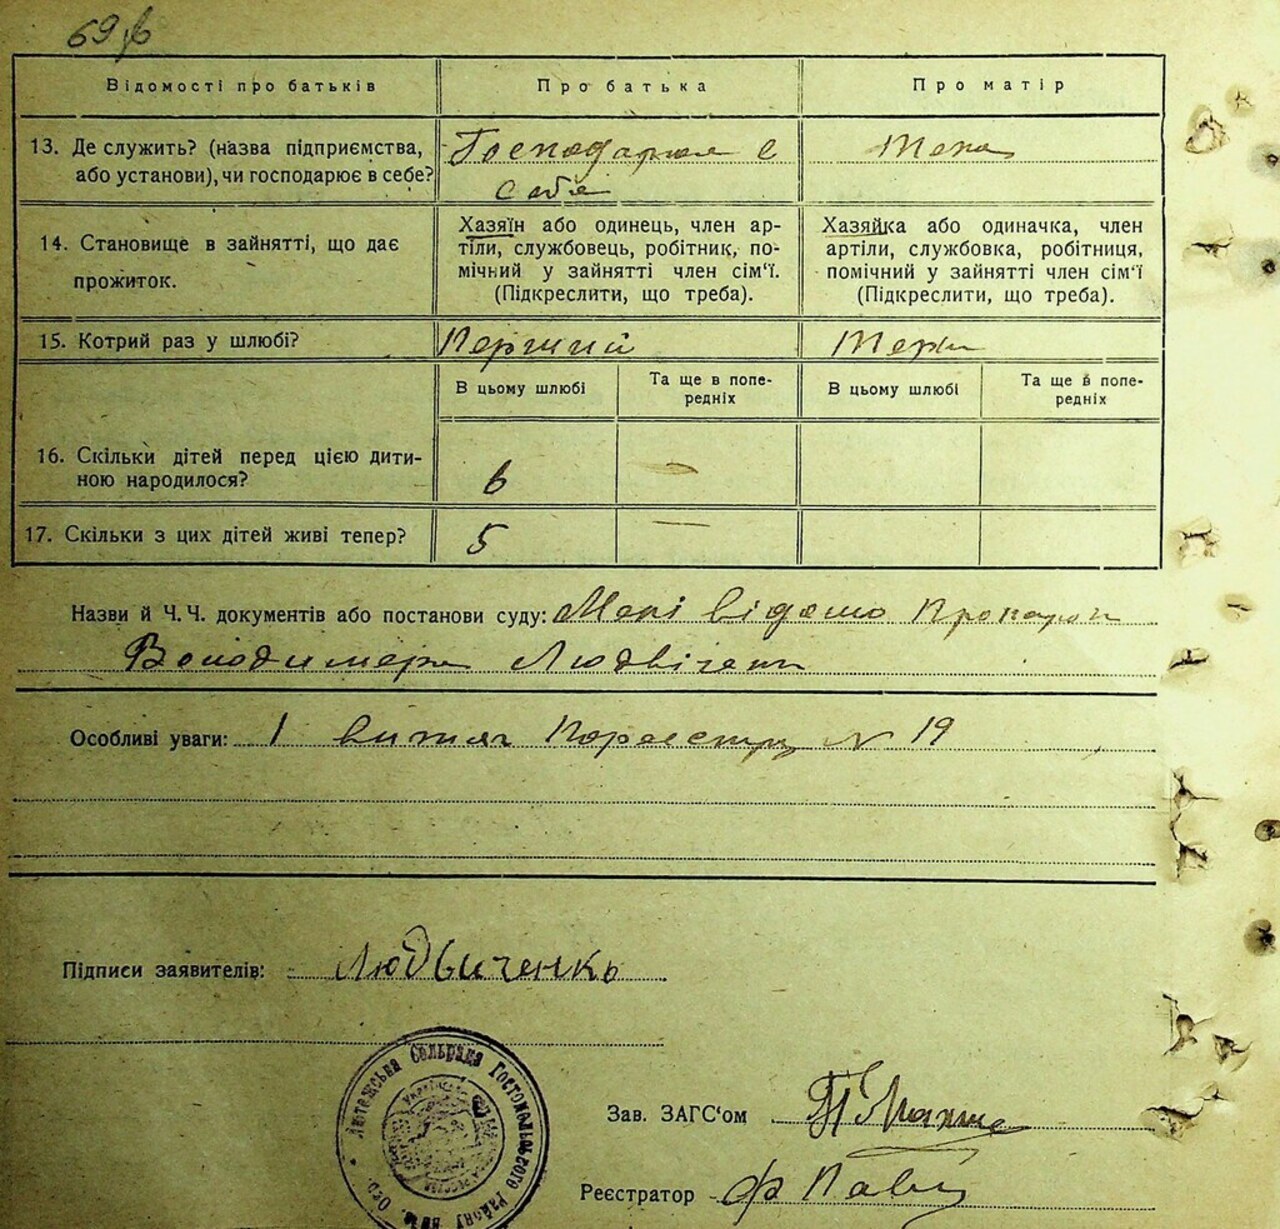 69
Відомості про батьків
Про батька
Про матір
13. Де служить? (назва підприємства,
або установи), чи господарює в себе?
Господарює в
себе
14. Становище в зайнятті, що дає
прожиток.
Хазяїн або одинець, член ар-
тіли, службовець, робітник, по-
мічний у зайнятті член сім'ї.
(Підкреслити, що треба).
Хазяйка або одиначка, член
артіли, службовка, робітниця,
помічний у зайнятті член сім'ї
(Підкреслити, що треба).
15. Котрий раз у шлюбі?
Перший
В цьому шлюбі
Та ще в попе-
редніх
В цьому шлюбі
Та ще в попе-
редніх
16. Скільки дітей перед цією дити-
ною народилося?
6
—
17. Скільки з цих дітей живі тепер?
5
—
Назви й Ч. Ч. документів або постанови суду: Мені відомо
Володимера
Особливі уваги: 1 витяг № 19
Підписи заявителів: Людвиченко
Сельрада Гостомельского Району
Зав. ЗАГС'ом
Реєстратор